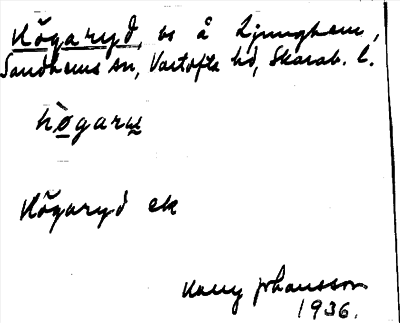 Högaryd, vs å Ljunghem,
Sandhems sn, Vartofta hd, Skarab. l.
hø̀garu̲
Högaryd ek
Harry Johansson
1936.